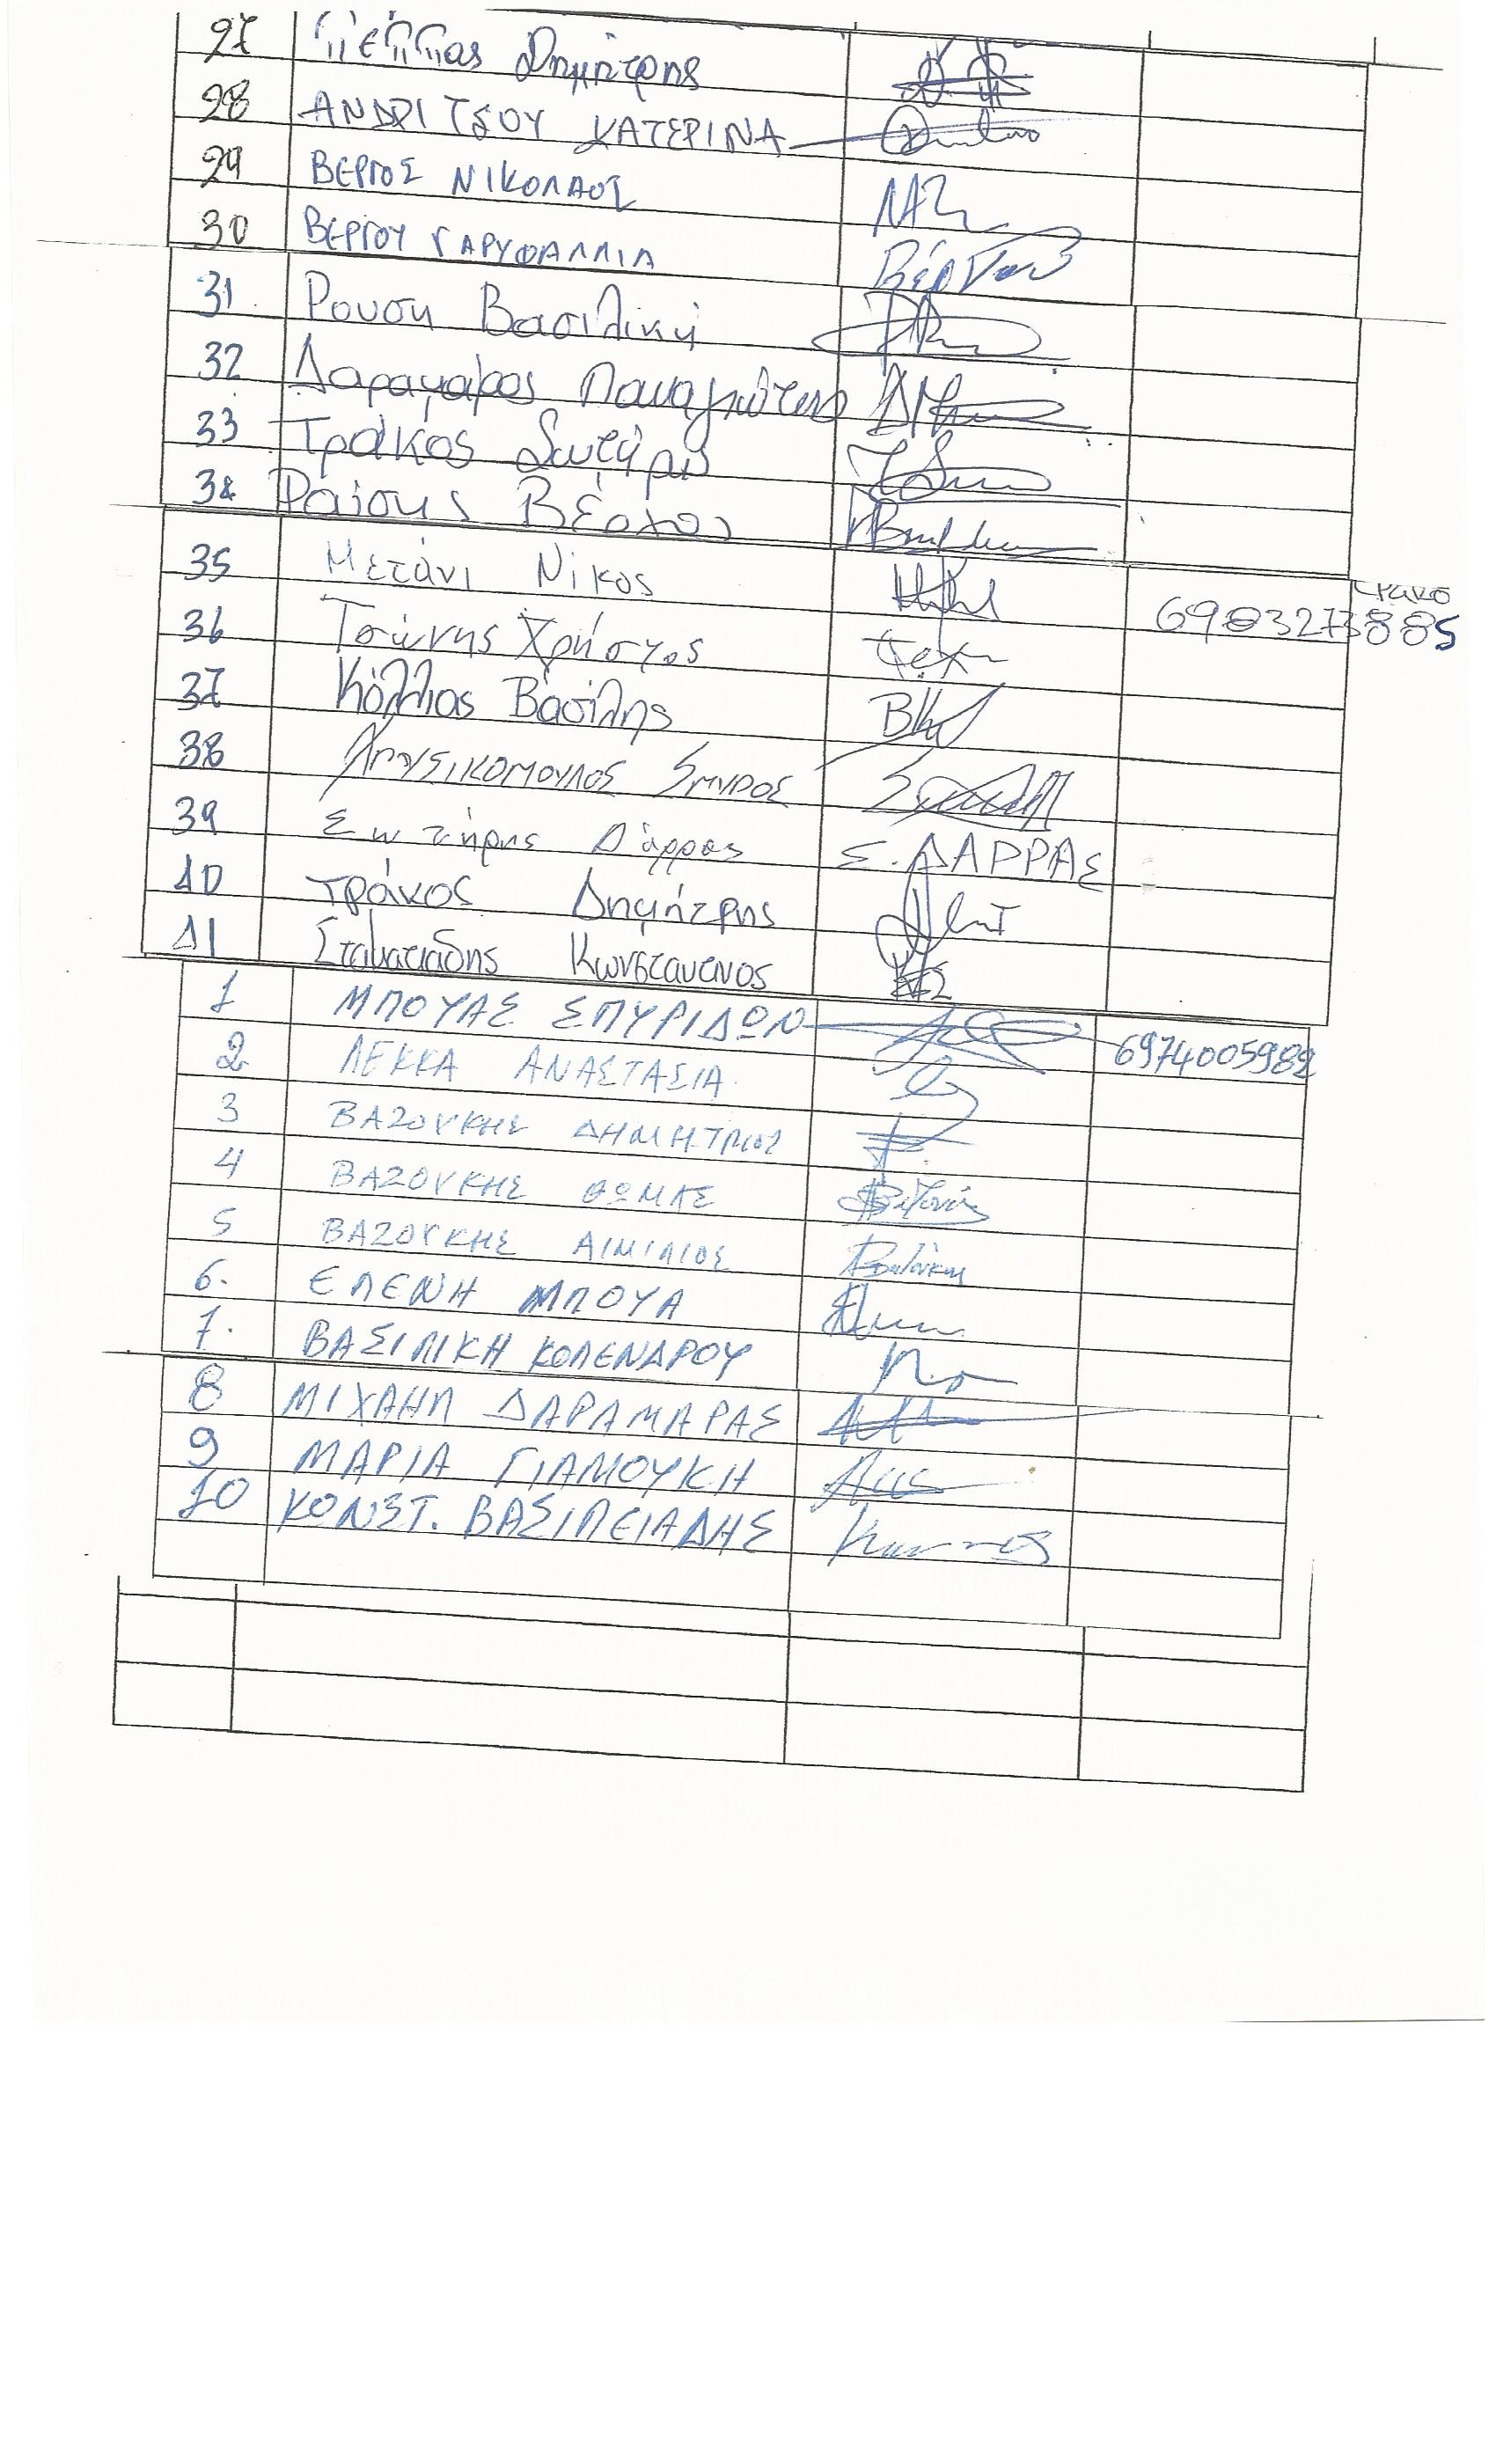 27 Δημήτρης
28 ΑΝΔΡΙΤΣΟΥ ΚΑΤΕΡΙΝΑ
29 ΒΕΡΓΟΣ ΝΙΚΟΛΑΟΣ
30 ΒΕΡΓΟΥ ΓΑΡΥΦΑΛΛΙΑ
31 Ρουση Βασιλική
32 Δαραμάρος Παναγιώτης
33 Τράκος Σωτήρης
34 Βέργος
35 Μετάνι Νίκος 6983273885
36 Τσώνης Χρήστος
37 Κόλλιας Βασίλης
38 ΣΠΥΡΟΣ
39 Σωτήρης Δάρρας Σ. ΔΑΡΡΑΣ
40 Τράκος Δημήτρης
41 Σταματιάδης Κωνσταντινος
1 ΜΠΟΥΑΣ ΣΠΥΡΙΔΩΝ 6974005982
2 ΛΕΚΚΑ ΑΝΑΣΤΑΣΙΑ
3 ΒΑΖΟΥΚΗΣ ΔΗΜΗΤΡΙΟΣ
4 ΒΑΖΟΥΚΗΣ ΘΩΜΑΣ
5 ΒΑΖΟΥΚΗΣ ΑΙΜΙΛΙΟΣ
6. ΕΛΕΝΗ ΜΠΟΥΑ
7. ΒΑΣΙΛΙΚΗ ΚΟΛΕΝΔΡΟΥ
8 ΜΙΧΑΗΛ ΔΑΡΑΜΑΡΑΣ
9 ΜΑΡΙΑ ΓΙΑΜΟΥΚΗ
10 ΚΟΝΣΤ. ΒΑΣΙΛΕΙΑΔΗΣ